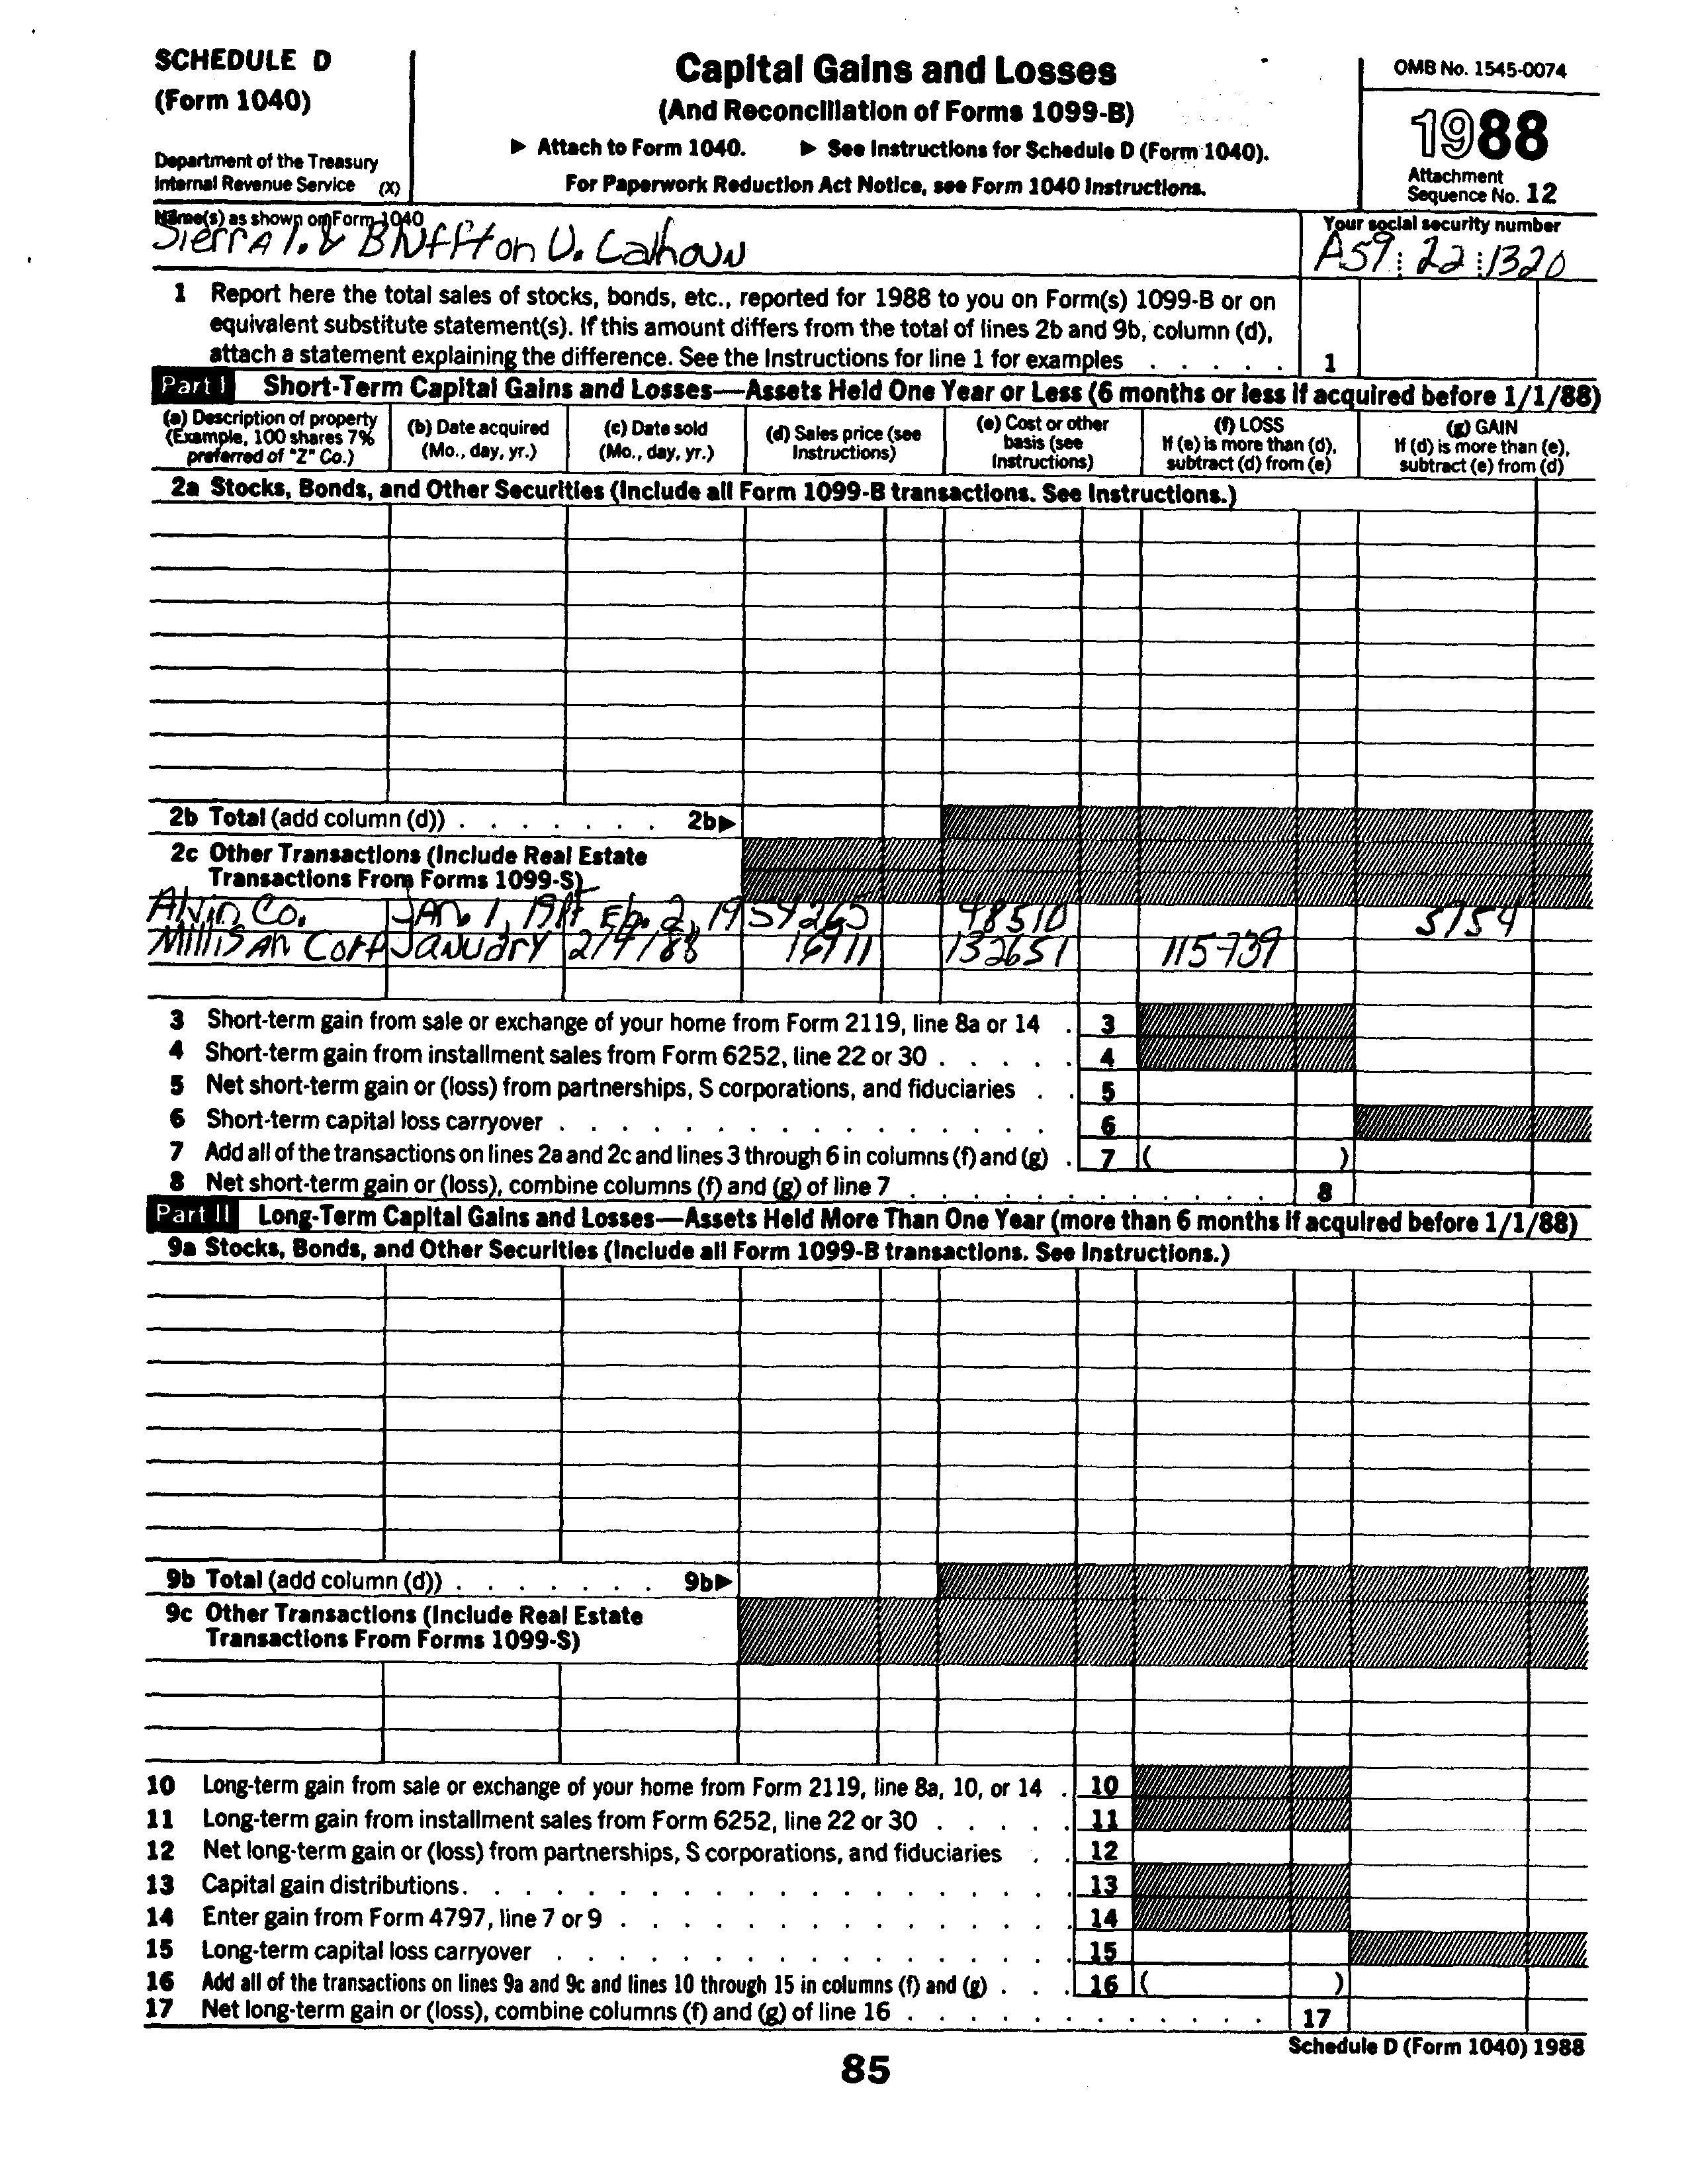 SCHEDULE D
(Form 1040)
Department of the Treasury
Internal Revenue Service (X)
Capital Gains and Losses
(And Reconciliation of Forms 1099-B)
▶ Attach to Form 1040. ▶ See Instructions for Schedule D (Form 1040).
For Paperwork Reduction Act Notice, see Form 1040 Instructions.
OMB No. 1545-0074
1988
Attachment
Sequence No. 12
Name(s) as shown on Form 1040
Sierra I. & Bluffton U. Calhoun
Your social security number
A59 22 1320
1 Report here the total sales of stocks, bonds, etc., reported for 1988 to you on Form(s) 1099-B or on
equivalent substitute statement(s). If this amount differs from the total of lines 2b and 9b, column (d),
attach a statement explaining the difference. See the Instructions for line 1 for examples . . . . . 1
Part I Short-Term Capital Gains and Losses—Assets Held One Year or Less (6 months or less if acquired before 1/1/88)
(a) Description of property
(Example, 100 shares 7%
preferred of "Z" Co.)
(b) Date acquired
(Mo., day, yr.)
(c) Date sold
(Mo., day, yr.)
(d) Sales price (see
Instructions)
(e) Cost or other
basis (see
Instructions)
(f) LOSS
If (e) is more than (d),
subtract (d) from (e)
(g) GAIN
If (d) is more than (e),
subtract (e) from (d)
2a Stocks, Bonds, and Other Securities (Include all Form 1099-B transactions. See Instructions.)
2b Total (add column (d)) . . . . . . . 2b▶
2c Other Transactions (Include Real Estate
Transactions From Forms 1099-S)
Alvin Co. Jan. 1, 19 Feb. 2, 19 54265 48510 5754
Millisan Corp January 2/4/88 16911 132651 115739
3 Short-term gain from sale or exchange of your home from Form 2119, line 8a or 14 . 3
4 Short-term gain from installment sales from Form 6252, line 22 or 30 . . . . . 4
5 Net short-term gain or (loss) from partnerships, S corporations, and fiduciaries . . 5
6 Short-term capital loss carryover . . . . . . . . . . . . . . . . 6
7 Add all of the transactions on lines 2a and 2c and lines 3 through 6 in columns (f) and (g) . 7 ( )
8 Net short-term gain or (loss), combine columns (f) and (g) of line 7 . . . . . . . . . . . . 8
Part II Long-Term Capital Gains and Losses—Assets Held More Than One Year (more than 6 months if acquired before 1/1/88)
9a Stocks, Bonds, and Other Securities (Include all Form 1099-B transactions. See Instructions.)
9b Total (add column (d)) . . . . . . . 9b▶
9c Other Transactions (Include Real Estate
Transactions From Forms 1099-S)
10 Long-term gain from sale or exchange of your home from Form 2119, line 8a, 10, or 14 . 10
11 Long-term gain from installment sales from Form 6252, line 22 or 30 . . . . . 11
12 Net long-term gain or (loss) from partnerships, S corporations, and fiduciaries . . 12
13 Capital gain distributions. . . . . . . . . . . . . . . . . . . . 13
14 Enter gain from Form 4797, line 7 or 9 . . . . . . . . . . . . . . . 14
15 Long-term capital loss carryover . . . . . . . . . . . . . . . . . 15
16 Add all of the transactions on lines 9a and 9c and lines 10 through 15 in columns (f) and (g) . . . 16 ( )
17 Net long-term gain or (loss), combine columns (f) and (g) of line 16 . . . . . . . . . . . . 17
Schedule D (Form 1040) 1988
85